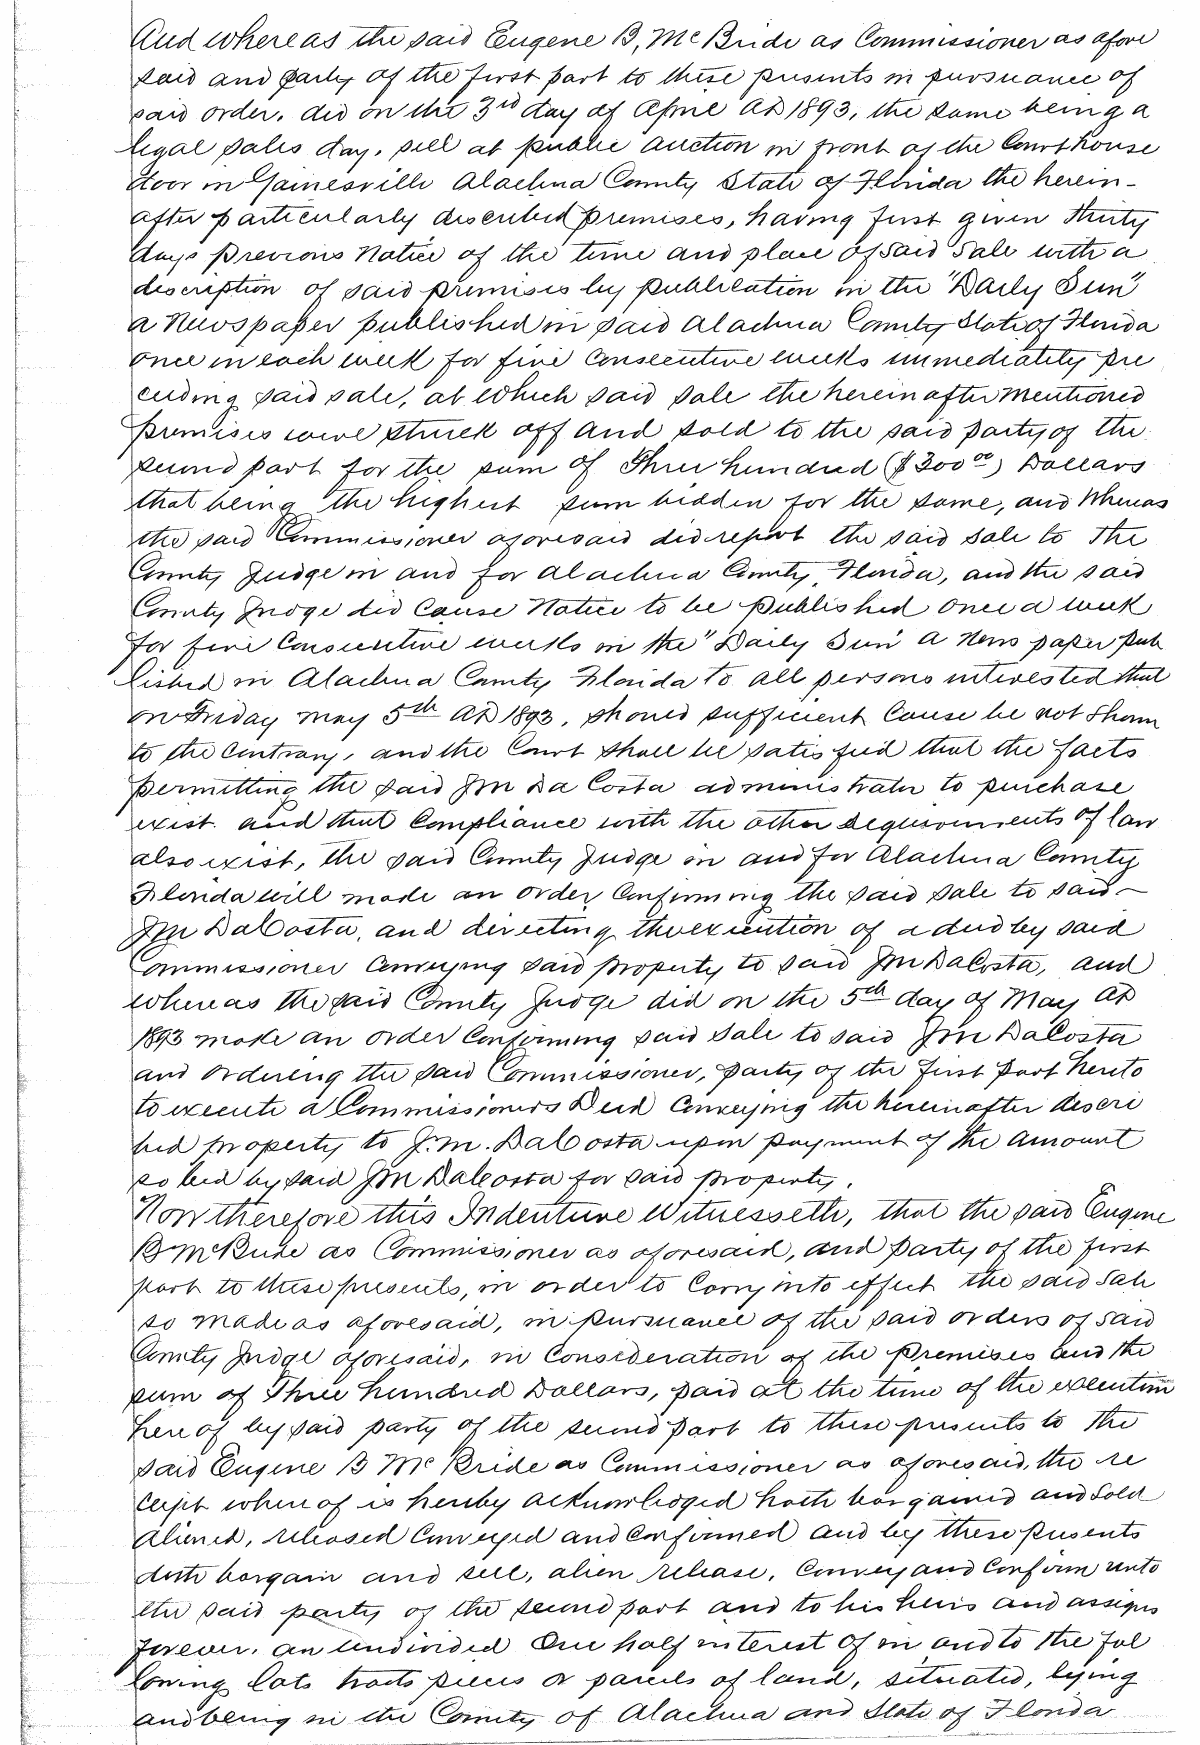 And whereas the said Eugene B, McBride as Commissioner as afore
said and party of the first part to these presents in pursuance of
said order. did on the 3rd day of April AD 1893, the same being a
legal sales day. sell at public auction in front of the Court house
door in Gainesville Alachua County State of Florida the herein-
after particularly described premises, having first given thirty
days previous Notice of the time and place of said Sale with a
description of said premises by publication in the "Daily Sun"
a Newspaper published in said Alachua County State of Florida
once in each week for five consecutive weeks immediately pre
ceeding said sale, at which said sale the herein after mentioned
premises were struck off and sold to the said party of the
second part for the sum of Three hundred ($300 00) Dollars
that being the highest sum bidden for the same, and Whereas
the said Commissioner aforesaid did report the said sale to the
County Judge in and for Alachua County, Florida, and the said
County Judge did cause Notice to be published once a week
for five consecutive weeks in the "Daily Sun" a News paper pub
lished in Alachua County Florida to all persons interested that
on Friday May 5th AD 1893, should sufficient cause be not shown
to the contrary, and the Court shall be satisfied that the facts
permitting the said J M Da Costa administrator to purchase
exist. and that compliance with the other requirements of law
also exist, the said County Judge in and for Alachua County
Florida will made an order confirming the said sale to said-
J M DaCosta, and directing the execution of a deed by said
Commissioner conveying said property to said J M DaCosta, and
whereas the said County Judge did on the 5th day of May AD
1893 make an order confirming said sale to said J M DaCosta
and ordering the said Commissioner, party of the first part hereto
to execute a Commissioners Deed conveying the hereinafter descri
bed property to J. M. DaCosta upon payment of the amount
so bid by said J M DaCosta for said property.
Now therefore this Indenture Witnesseth, that the said Eugene
B McBride as Commissioner as aforesaid, and party of the first
part to these presents, in order to carry into effect the said Sale
so made as aforesaid, in pursuance of the said orders of said
County Judge aforesaid, in consideration of the premises and the
sum of Three hundred Dollars, paid at the time of the execution
here of by said party of the second part to these presents to the
said Eugene B McBride as Commissioner as aforesaid, the re
ceipt where of is hereby acknowledged hath bargained and sold
aliened, released conveyed and confirmed and by these presents
doth bargain and sell, alien release, convey and confirm unto
the said party of the second part and to his heirs and assigns
forever. an undivided One half interest of in and to the fol
lowing lots tracts pieces or parcels of land, situated, lying
and being in the County of Alachua and State of Florida